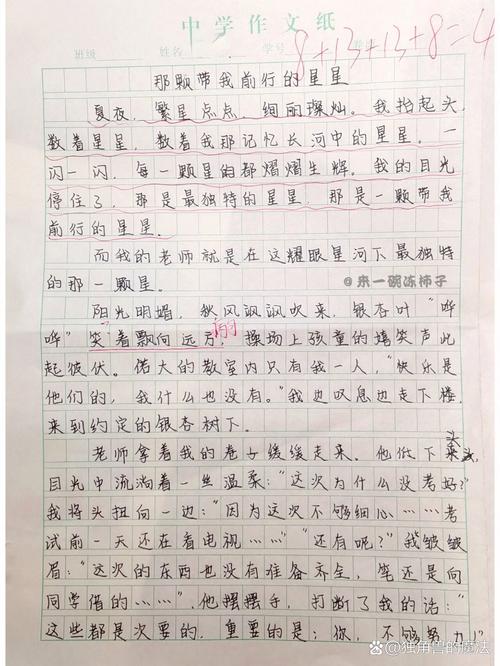 中学作文纸
班级 姓名 学号
8+13+13+8=4
那颗带我前行的星星
夏夜，繁星点点，绚丽璨灿。我抬起头，
数着星星，数着我那记忆长河中的星星。一
闪一闪，每一颗星的都熠熠生辉。我的目光
停住了，那是最独特的星星，那是一颗带我
前行的星星。
而我的老师就是在这耀眼星河下最独特
的那一颗星。
@来一碗冻柿子
阳光明媚，秋风飒飒吹来，银杏叶“哗
哗”笑着飘向远方，操场上孩童的嬉笑声此
起彼伏。偌大的教室内只有我一人，“快乐是
他们的，我什么也没有。”我边叹息边走下楼，
来到约定的银杏树下。
老师拿着我的卷子缓缓走来。他低下头，
目光中流淌着一丝温柔：“这次为什么没考好？”
我将头扭向一边：“因为这次不够细心……考
试前一天还在看电视……”“还有呢？”我皱皱
眉：“这次的东西也没有准备齐全，笔还是向
同学借的……”他摆摆手，打断了我的话：“
这些都是次要的，重要的是：你，不够努力！”
@独角兽的魔法